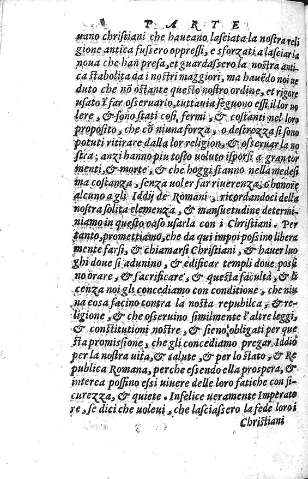 PARTE
uano christiani che haueano lasciata la nostra reli
gione antica fussero oppressi, e sforzati a lasciar la
noua che han presa, et guardassero la nostra anti-
ca stabolita da i nostri maggiori, ma hauẽdo noi ue
duto che nõ ostante questo nostro ordine, et rigore
usato ĩ far osseruarlo, tuttauia seguono essi il lor uo
lere, & sono stati così, fermi, & costanti nel loro
proposito, che cõ niuna forza, o destrezza si sono
potuti ritirare dalla lor religion, & osseruar la no
stra; anzi hanno piu tosto uoluto isporsi a gran tor
menti, & morte, & che hoggi stanno nella medesi
ma costanza, senza uoler far riuerenza, o honore
alcuno a gli Iddij de Romani, ricordandoci della
nostra solita clemenza, & mansuetudine determi-
niamo in questo caso usarla con i Christiani. Per
tanto, promettiamo, che da qui inpoi possino libera
mente farsi, & chiamarsi Christiani, & hauer luo
ghi doue si adunino, & edificar templi doue possi
no orare, & sacrificare, & questa facultà, & li
cenza noi gli concediamo con conditione, che niu
na cosa facino contra la nostra republica, & re-
ligione, & che osseruino similmente l'altre leggi,
& constitutioni nostre, & sieno obligati per que
sta promissione, che gli concediamo pregar Iddio
per la nostra uita, & salute, & per lo stato, & Re
publica Romana, perche essendo ella prospera, &
interea possino essi uiuere delle loro fatiche con si-
curezza, & quiete. Infelice ueramente Imperato
re, se dici che uoleui, che lasciassero la fede loro i
Christiani